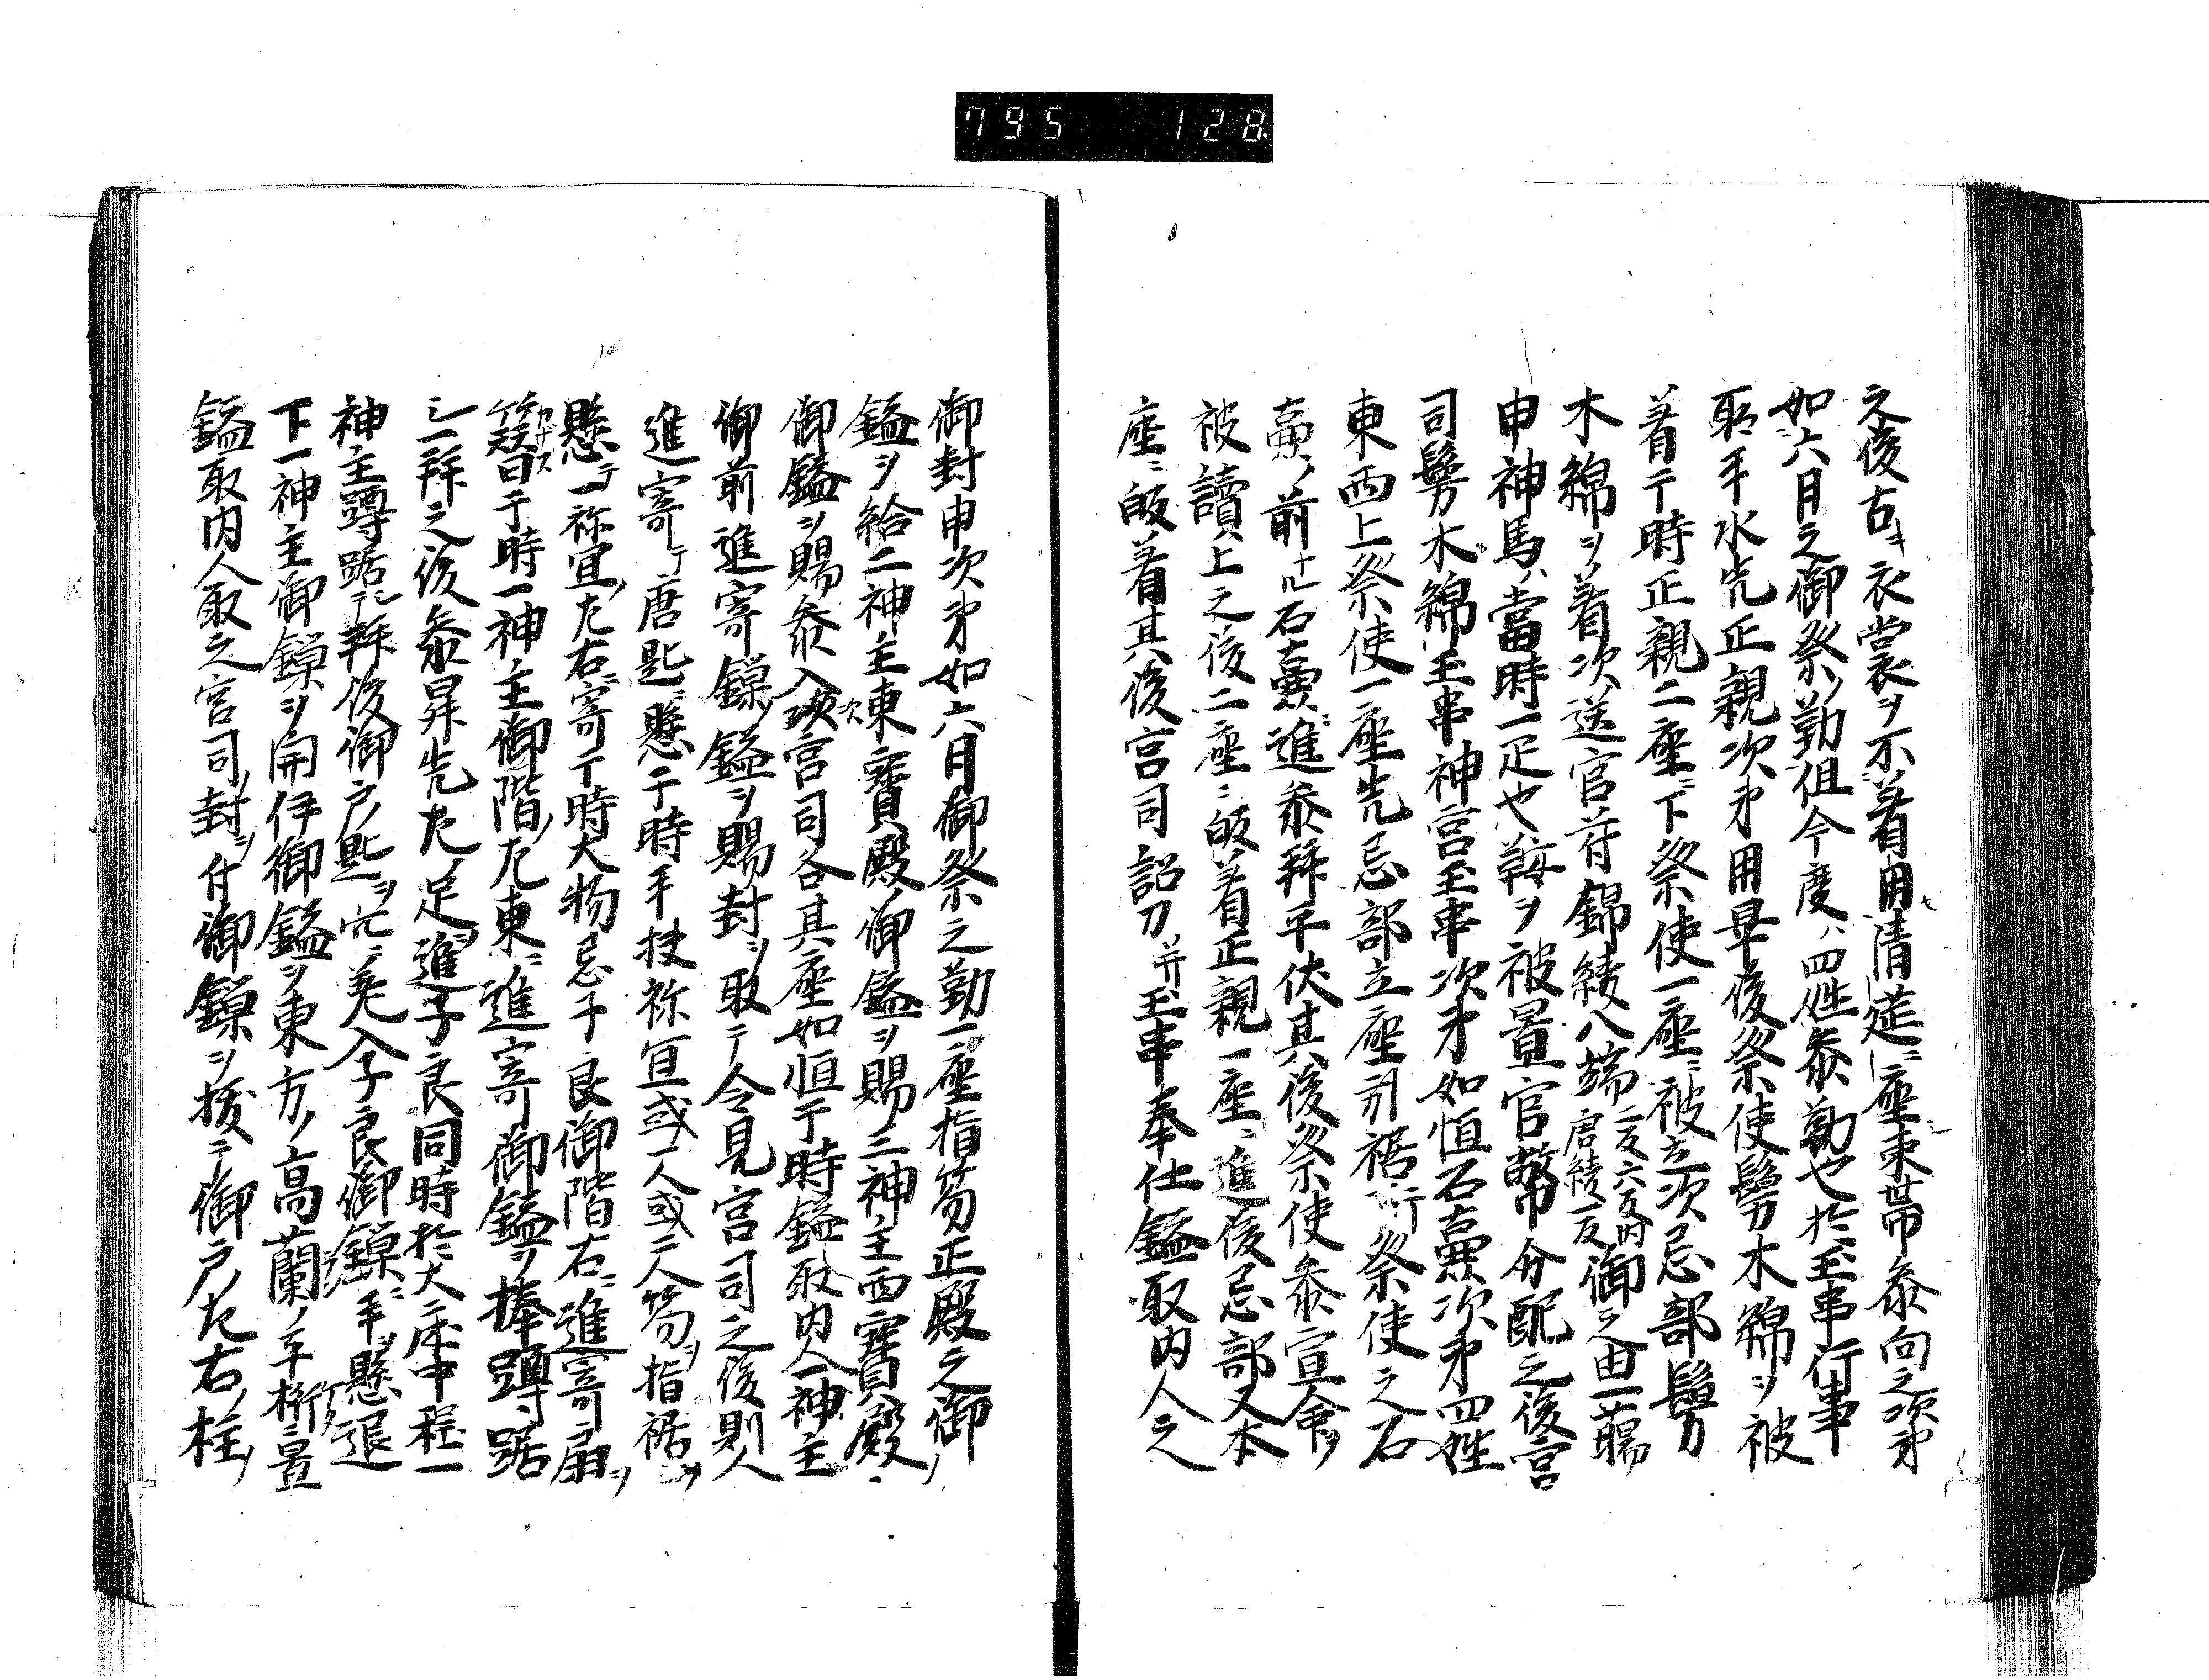 795 128
之後古キ衣裳ヲ不着用清莚ニ座束帯参向之次第
如六月之御祭勤但今度ハ四姓参勤也於玉串行事
取手水先正親次第用畢後祭使鬘木綿ヲ被
着于時正親二座ニ下祭使一座ニ被立次忌部鬘
木綿ヲ着次送官符錦綾八端二反六反内唐綾一反御之由一﨟
申神馬ハ當時一疋也鞍ヲ被置官幣分配之後宮
司鬘木綿玉串神宮玉串次第如恒石壷次第四姓
東西上祭使一座先忌部立座引裾行祭使之石
壷ノ前ナル石壷ニ進参拜平伏其後祭使参宣命ヲ
被讀上之後二座ニ皈着正親一座ニ進後忌部又本
座ニ皈着其後宮司詔刀并玉串奉仕鎰取内人之
御封申次第如六月御祭之勤一座指笏正殿之御
鎰ヲ給二神主東寶殿ノ御鎰ヲ賜三神主西寶殿
御鎰ヲ賜参入次宮司各其座如恒于時鎰取内人一神主
御前進寄鏁鎰ヲ賜封ヲ取テ令見宮司之後則人
進寄テ唐匙ニ懸于時手扶祢宜或一人或二人笏ヲ指裾ヲ
懸テ一祢宜ノ左右ニ寄于時大物忌子良御階右ニ進寄扇ヲ
簪カザス日于時一神主御階ノ左東ニ進寄御鎰ヲ捧蹲踞
シ一拜之後参昇先左ノ足ヲ進子良同時於大床中程一
神主蹲踞シ一拜後御戸ノ匙ヲ穴ニ差入子良御鏁ニ手ヲ懸退
下一神主御鏁ヲ開伴御鎰ヲ東方ノ高蘭ノ平桁ニ置
鎰取内人取之宮司ノ封ヲ付御鏁ヲ拔テ御戸ノ左右ノ柱ノ